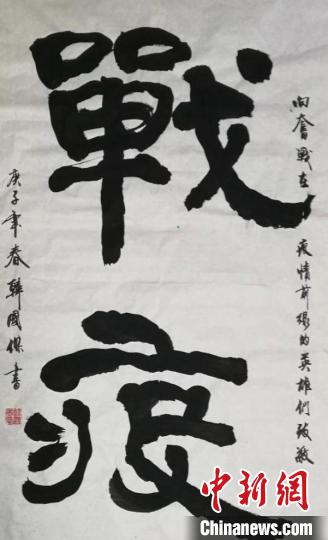 向奮戰在疫情前線的英雄們致敬
戰疫
庚子年春韓國保書
中新网
Chinanews.com